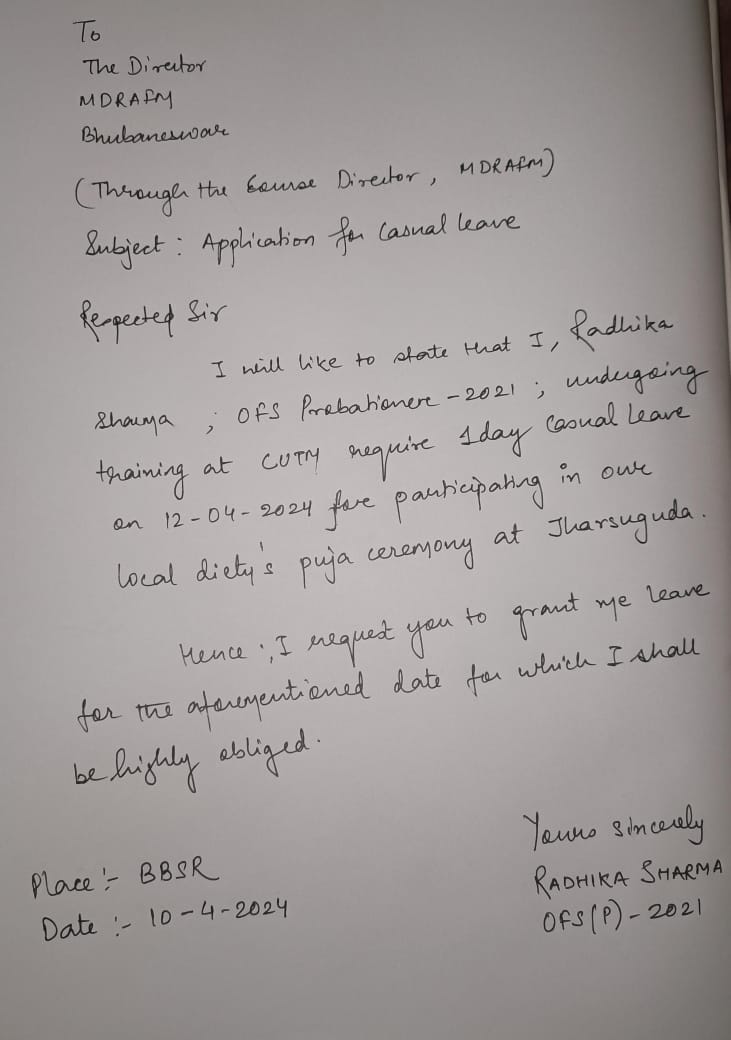 To
The Director
MDRAFM
Bhubaneswar
(Through the Course Director, MDRAFM)
Subject : Application for Casual leave
Respected Sir
I will like to state that I, Radhika
Sharma ; OFS Probationer - 2021 ; undergoing
training at CUTM require 1day Casual Leave
on 12-04-2024 for participating in our
local diety's puja ceremony at Jharsuguda.
Hence ;, I request you to grant me leave
for the aforementioned date for which I shall
be highly obliged.
Yours sincerely
Place :- BBSR
RADHIKA SHARMA
Date :- 10-4-2024
OFS(P) - 2021